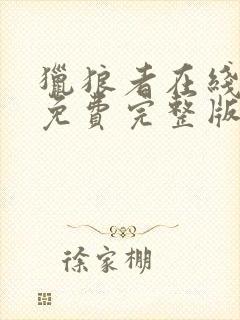 獵狼者在綫
免費完整版
徐家棚